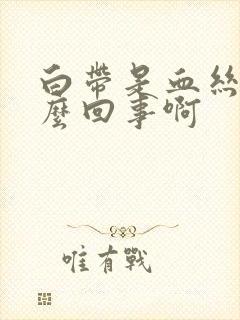 白帶是血絲
麼回事啊
唯有戰